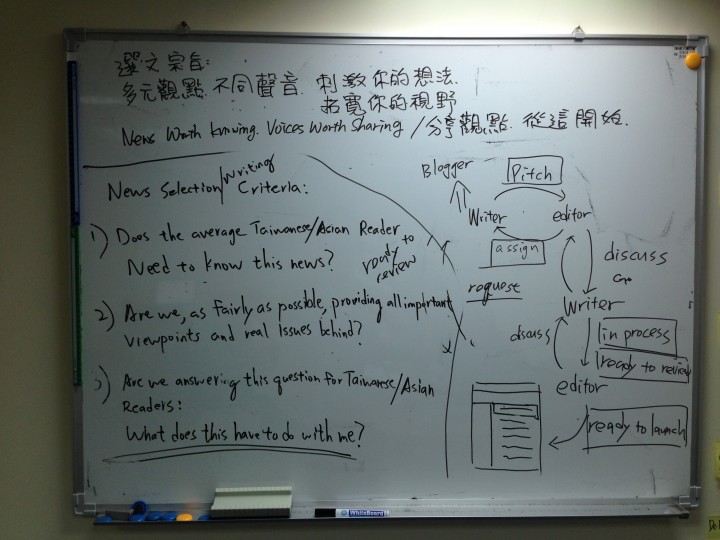 選文宗旨:
多元觀點. 不同聲音. 刺激你的想法.
拓寬你的視野
News Worth knowing. Voices Worth Sharing / 分享觀點. 從這開始.
News Selection/Writing Criteria:
1) Does the average Taiwanese/Asian Reader
Need to know this news?
ready to
review
2) Are we, as fairly as possible, providing all important
viewpoints and real Issues behind?
3) Are we answering this question for Taiwanese/Asian
Readers:
What does this have to do with me?
Blogger
Pitch
Writer
editor
assign
request
discuss
Writer
discuss
in process
ready to review
editor
ready to launch
WhiteBoard